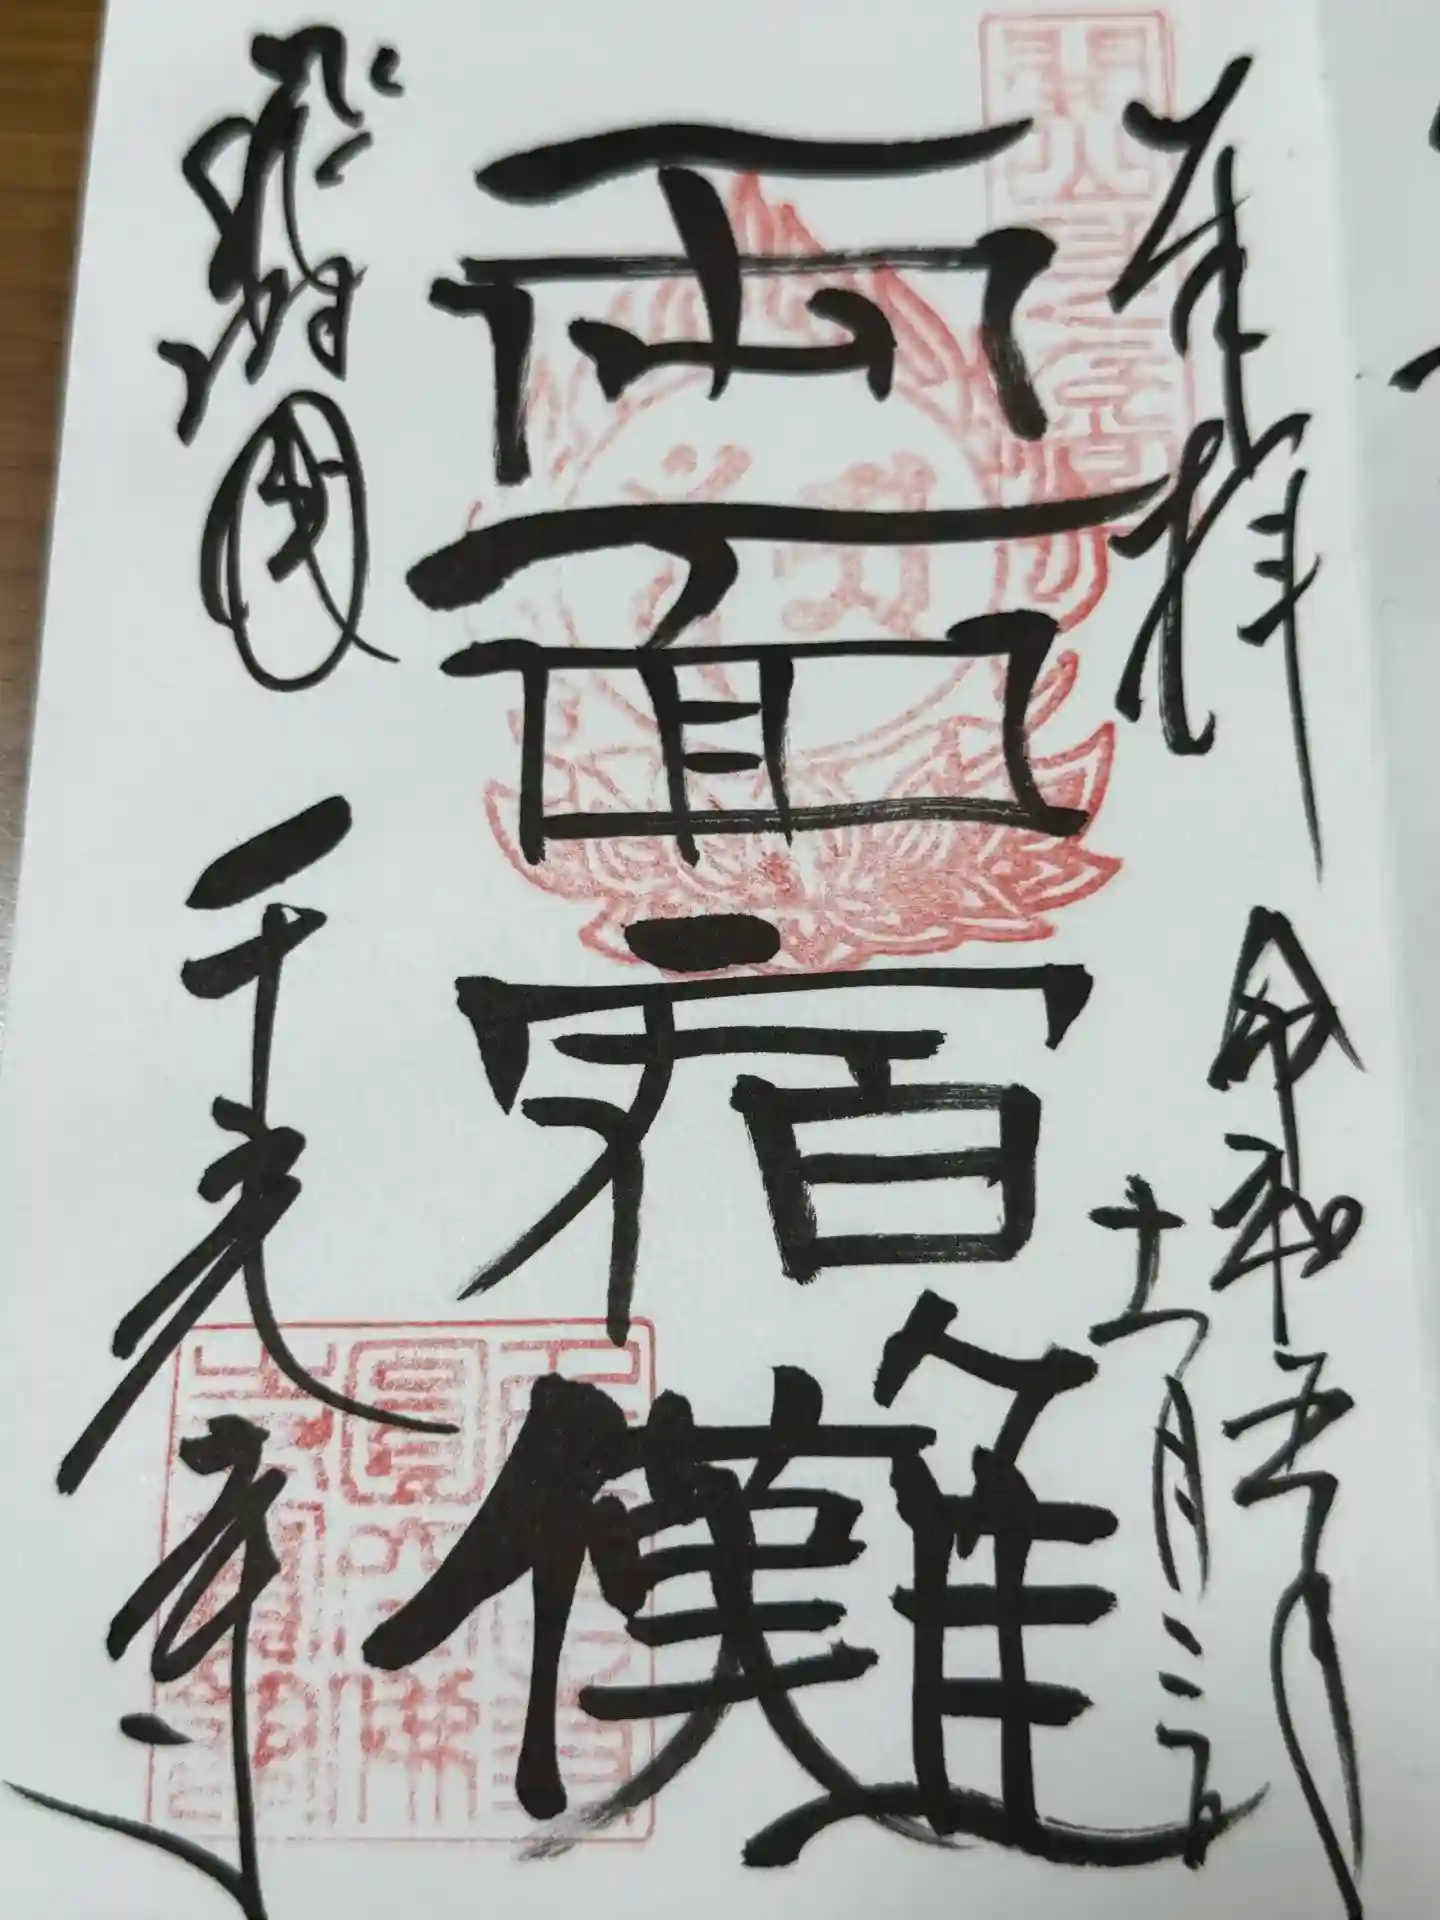 奉拝
令和五年
十一月三日
両面宿儺
飛騨国
千光寺